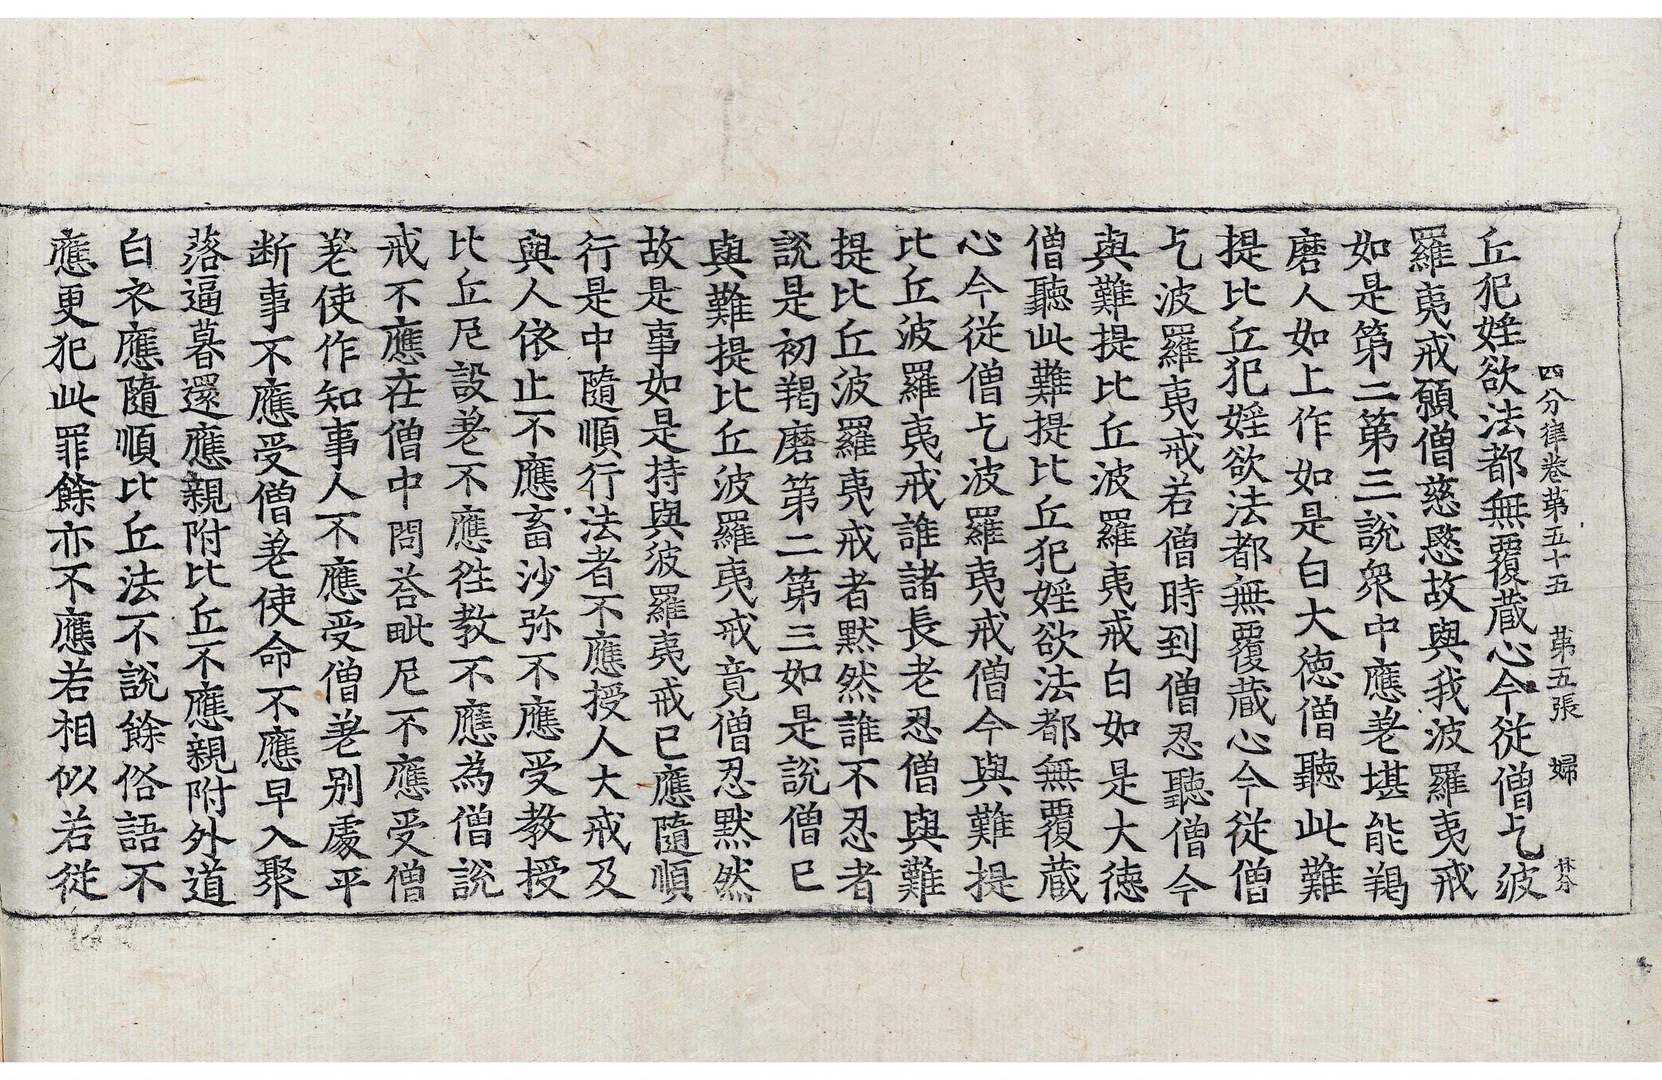 四分律卷第五十五 第五張 婦 林芬
丘犯婬欲法都無覆蔵心今従僧乞波
羅夷戒願僧慈愍故與我波羅夷戒
如是第二第三說衆中應差堪能羯
磨人如上作如是白大徳僧聽此難
提比丘犯婬欲法都無覆蔵心今従僧
乞波羅夷戒若僧時到僧忍聽僧今
與難提比丘波羅夷戒白如是大徳
僧聽此難提比丘犯婬欲法都無覆蔵
心今従僧乞波羅夷戒僧今與難提
比丘波羅夷戒誰諸長老忍僧與難
提比丘波羅夷戒者默然誰不忍者
說是初羯磨第二第三如是說僧已
與難提比丘波羅夷戒竟僧忍默然
故是事如是持與波羅夷戒已應隨順
行是中隨順行法者不應授人大戒及
與人依止不應畜沙弥不應受教授
比丘尼設差不應往教不應為僧說
戒不應在僧中問荅毗尼不應受僧
差使作知事人不應受僧差別處平
断事不應受僧差使命不應早入聚
落逼暮還應親附比丘不應親附外道
白衣應隨順比丘法不說餘俗語不
應更犯此罪餘亦不應若相似若従